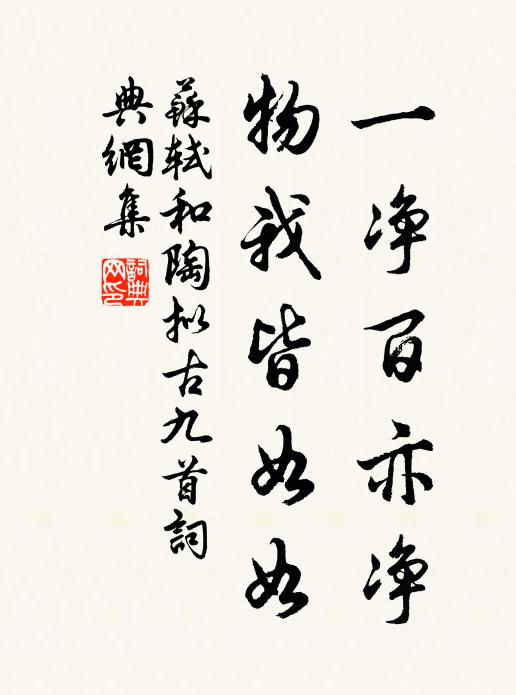 一净百亦净
物我皆如如
蘇軾和陶拟古九首詞
典網集
詞典
网印